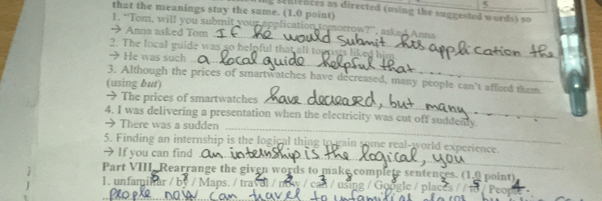 sentences as directed (using the suggested words) so
that the meanings stay the same. (1.0 point)
1. "Tom, will you submit your application tomorrow?", asked Anna
→ Anna asked Tom If he would submit his application the
2. The local guide was so helpful that all tourists liked him
→ He was such a local guide helpful that....
3. Although the prices of smartwatches have decreased, many people can't afford them.
(using but)
→ The prices of smartwatches have decreased, but many.....
4. I was delivering a presentation when the electricity was cut off suddenly.
→ There was a sudden
5. Finding an internship is the logical thing to gain some real-world experience.
→ If you can find an internship is the logical, you
Part VIII. Rearrange the given words to make complete sentences. (1.0 point)
1. unfamiliar / by / Maps. / travel / now / can / using / Google / places / / to / People
people now can travel to unfamiliar